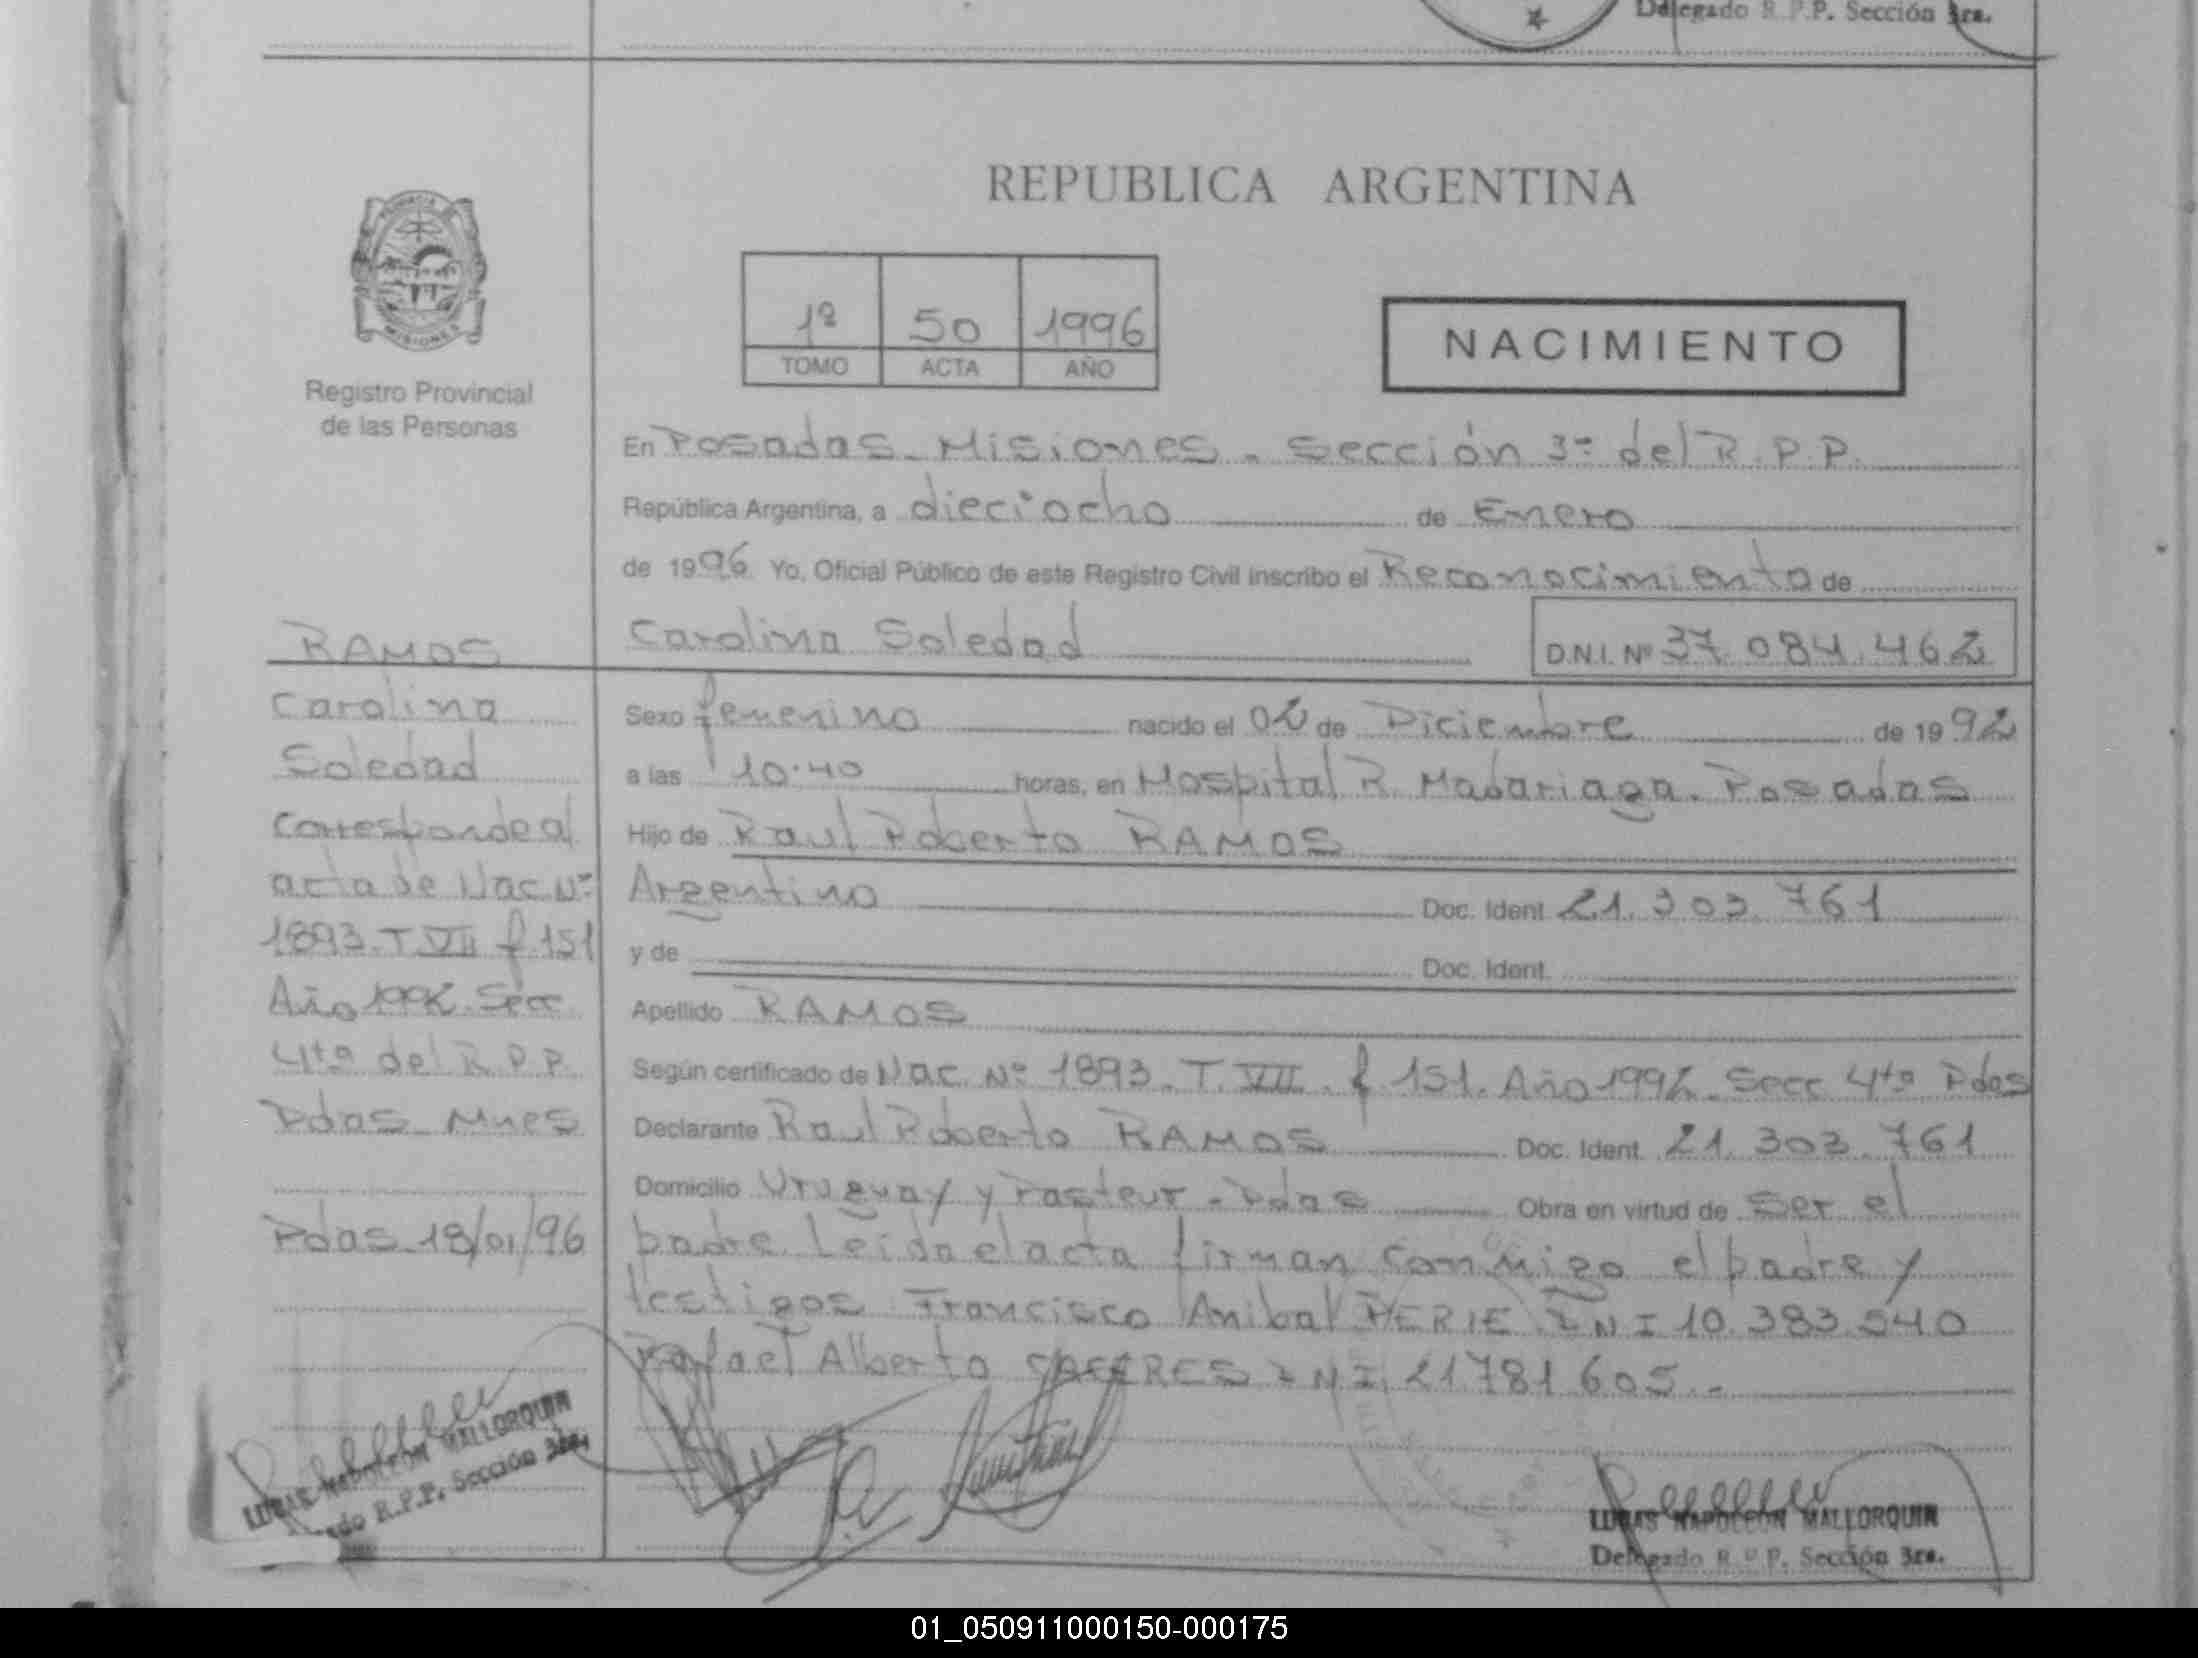 Delegado R.P.P. Sección 3ra.
REPUBLICA ARGENTINA
PROVINCIA DE
MISIONES
Registro Provincial
de las Personas
1º 50 1996
TOMO ACTA AÑO
NACIMIENTO
En Posadas - Misiones - Sección 3ª del R.P.P.
República Argentina, a dieciocho de Enero
de 1996 Yo, Oficial Público de este Registro Civil inscribo el Reconocimiento de
Carolina Soledad D.N.I. Nº 37.084.462
Sexo femenino nacido el 02 de Diciembre de 1992
a las 10.40 horas, en Hospital R. Madariaga. Posadas
Hijo de Raul Roberto RAMOS
Argentino Doc. Ident. 21.303.761
y de Doc. Ident.
Apellido RAMOS
Según certificado de Nac. Nº 1893. T. VII. f 151. Año 1992. Secc 4ta Pdas
Declarante Raul Roberto RAMOS Doc. Ident. 21.303.761
Domicilio Uruguay y Pasteur - Pdas Obra en virtud de Ser el
padre. Leida el acta firman conmigo el padre y
testigos Francisco Anibal PERIE DNI 10.383.540
Rafael Alberto CACERES DNI 21781605.-
RAMOS
Carolina
Soledad
Corresponde al
acta de Nac Nº
1893. T VII f 151
Año 1992. Secc
4ta del R.P.P.
Pdas - Mnes
Pdas 18/01/96
LUCAS NAPOLEON MALLORQUIN
Delegado R.P.P. Sección 3ra.
LUCAS NAPOLEON MALLORQUIN
Delegado R.P.P. Sección 3ra.
01_050911000150-000175